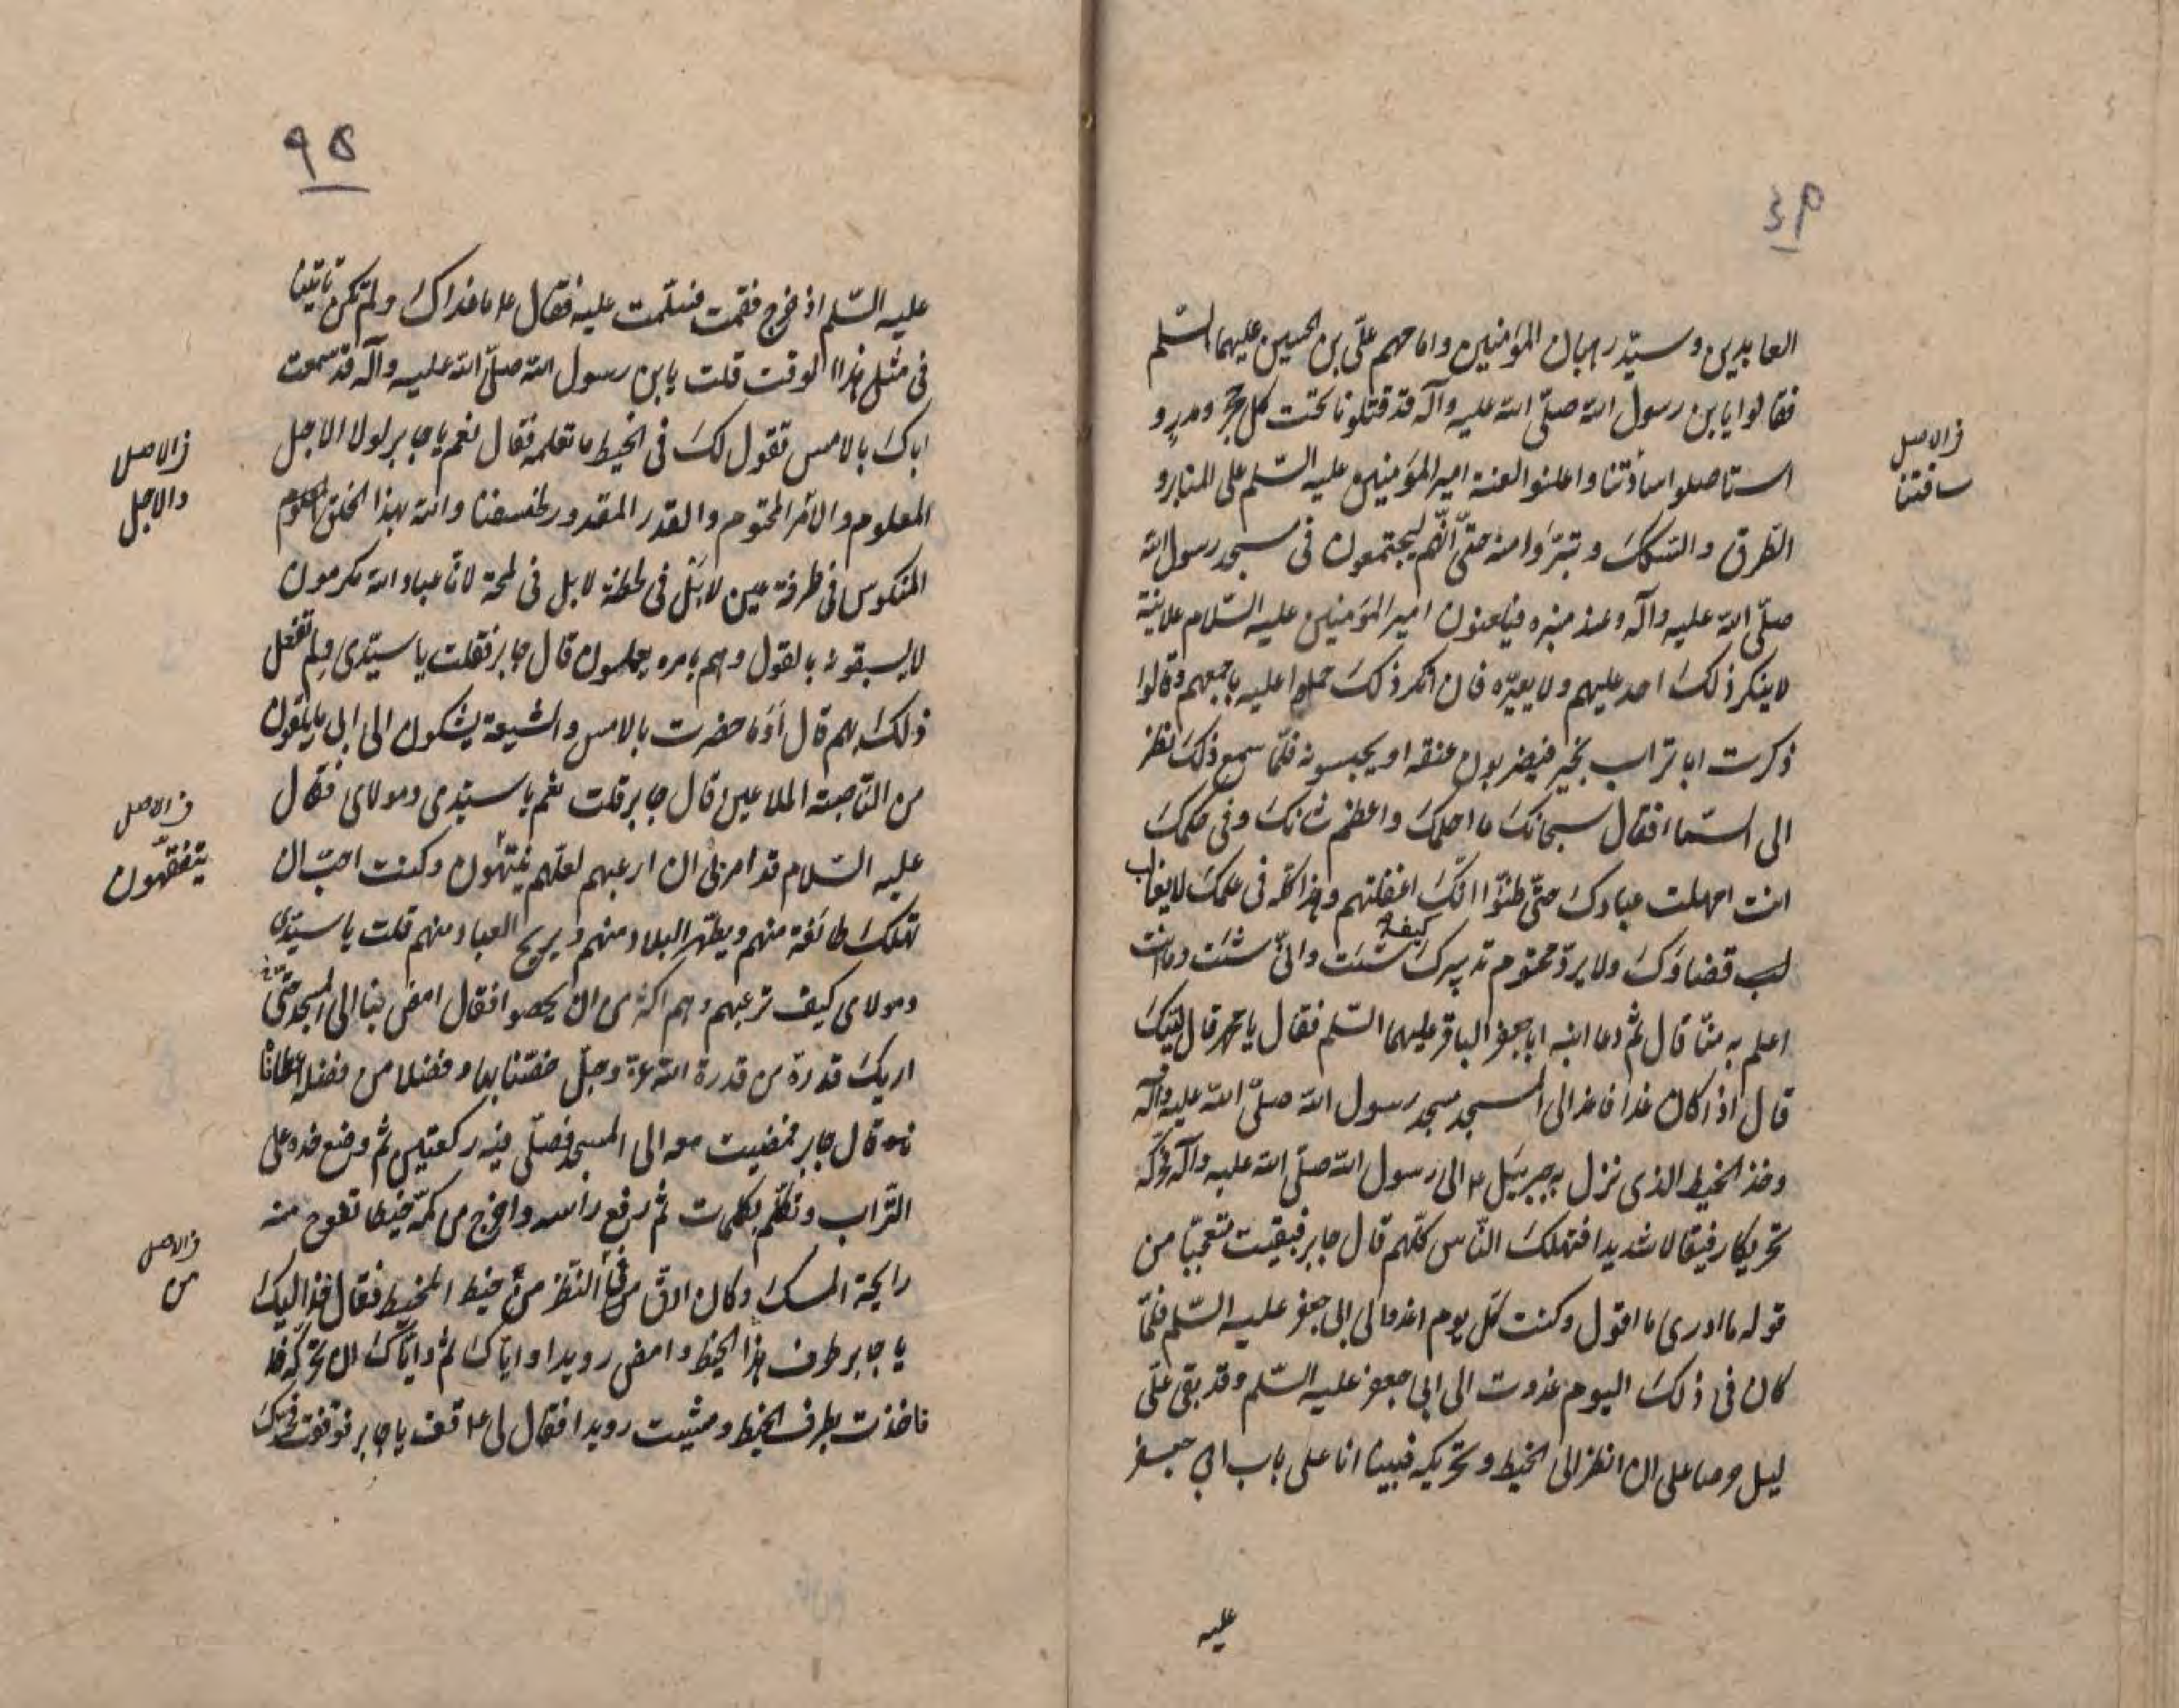 ٩٤
العابدين وسيّد رهبان المؤمنين وامامهم علىّ بن الحسين عليهما السّلم
فقالوا يابن رسول الله صلّى الله عليه وآله قد قتلونا تحت كل حجر ومدر و
استاصلوا ساقتنا واعلنوا لعنة امير المؤمنين عليه السّلم على المنابر و
الطّرق والسّكك وتبرّؤا منه حتّى انّهم ليجتمعون فى مسجد رسول الله
صلّى الله عليه وآله وعند منبره فيلعنون امير المؤمنين عليه السّلام علانية
لا ينكر ذلك احد عليهم ولا يعيّره فان انكر ذلك حملوا عليه باجمعهم وقالوا
ذكرت ابا تراب بخير فيضربون عنقه او يحبسونه فلمّا سمع ذلك نظر
الى السّماء فقال سبحانك ما احلمك واعظم شانك وفى حكمك
انت امهلت عبادك حتّى ظنّوا انّك اغفلتهم وهذا كلّه فى علمك لا يغا
لب قضاؤك ولا يردّ محتوم تدبيرك كيف شئت وانّى شئت وما انت
اعلم به منّا قال ثم دعا ابنه ابا جعفر الباقر عليهما السّلم فقال يا محمد قال لبّيك
قال اذا كان غدا فاغد الى المسجد مسجد رسول الله صلّى الله عليه وآله
وخذ الخيط الذى نزل به جبرئيل ع الى رسول الله صلّى الله عليه وآله فحرّكه
تحريكا رفيقا لا شديدا فتهلك النّاس كلّهم قال جابر فبقيت تعجّبا من
قوله ما ادرى ما اقول وكنت كلّ يوم اغدوا الى ابى جعفر عليه السّلم فلمّا
كان فى ذلك اليوم غدوت الى ابى جعفر عليه السّلم وقد بقى علّى
ليل حرصا على ان انظر الى الخيط وتحريكه فبينا انا على باب ابى جعفر
عليه
فى الاصل
سافتنا
٩٥
عليه السّلم اذ خرج فقمت فسلّمت عليه فقال ع ما غداك ولم تكن تاتينا
فى مثل هذا الوقت قلت يابن رسول الله صلّى الله عليه وآله قد سمعت
اباك بالامس تقول لك فى الخيط ما تعلمه فقال نعم يا جابر لولا الاجل
المعلوم والامر المحتوم والقدر المقدور لخسفنا والله بهذا الخلق
المنكوس فى طرفة عين لا بل فى لحظة لا بل فى لمحة لانّا عباد الله مكرمون
لا يسبقونه بالقول وهم بامره يعملون قال جابر فقلت يا سيّدى ولم تفعل
ذلك بهم قال أو ما حضرت بالامس والشيعة يشكون الى ابى ما يلقون
من النّاصبة الملاعين قال جابر قلت نعم يا سيّدى ومولاى فقال
عليه السّلام قد امرنى ان ارعبهم لعلّهم ينتهون وكنت احبّ ان
تهلك طائفة منهم ويطهّر البلاد منهم ويريح العباد منهم قلت يا سيّدى
ومولاى كيف ترعبهم وهم اكثر من ان يحصوا فقال امض بنا الى المسجد حتّى
اريك قدرة من قدرة الله عزّ وجلّ خصّنا بها وفضلا من فضله اعطانا
ه قال جابر فمضيت معه الى المسجد فصلّى فيه ركعتين ثم وضع خده على
التّراب وتكلّم بكلمات ثم رفع راسه واخرج من كمّه خيطا تفوح منه
رايحة المسك وكان ادقّ فى النّظر من خيط المخيط فقال خذ اليك
يا جابر طرف هذا الخيط وامض رويدا واياك ثم واياك ان تحركه قد
فاخذت بطرف الخيط ومشيت رويدا فقال لى ع قف يا جابر فوقفت فحرّك
فى الاصل
والاجل
فى الاصل
يتفقّهون
فى الاصل
من